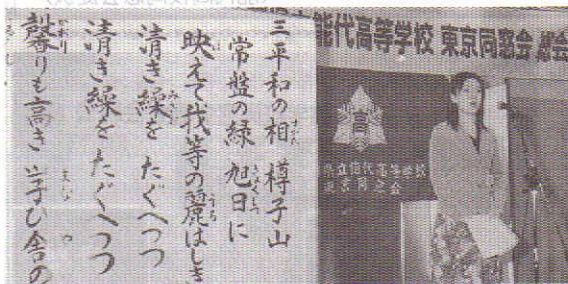 三 平和の相 樽子山
常盤の緑 旭日に
映えて我等の麗はしき
清き繰を たぐへつつ
清き繰を たぐへつつ
馨りも高き 学び舎の
能代高等学校 東京同窓会 総会
高
立能代高等学校